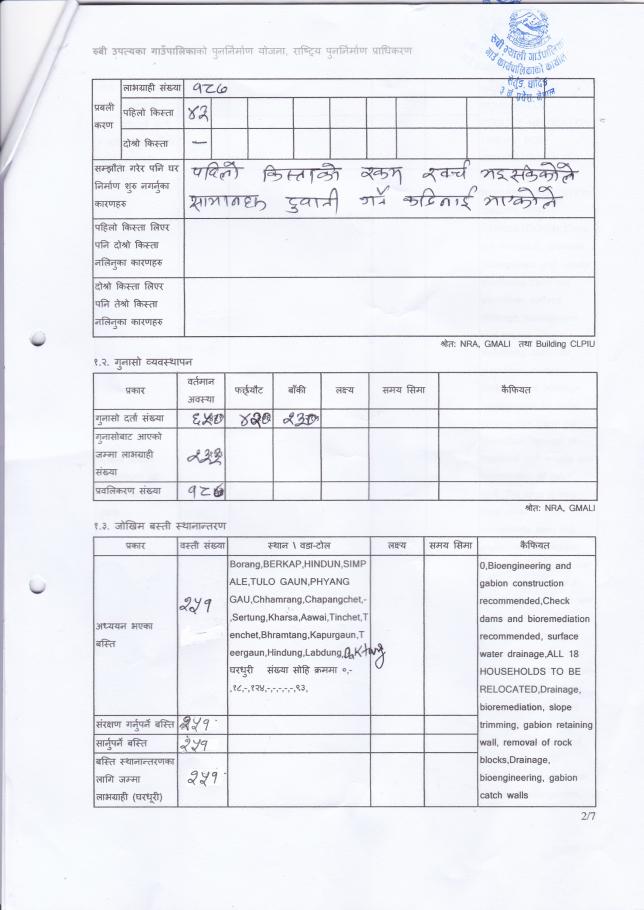 रुबी उपत्यका गाउँपालिकाको पुनर्निर्माण योजना, राष्ट्रिय पुनर्निर्माण प्राधिकरण
रुबी भ्याली गाउँपालिका
गाउँ कार्यपालिकाको कार्यालय
सेर्तुङ, धादिङ
३ नं. प्रदेश, नेपाल
प्रबली
करण
लाभग्राही संख्या
१८७
पहिलो किस्ता
४२
दोश्रो किस्ता
—
सम्झौता गरेर पनि घर
निर्माण शुरु नगर्नुका
कारणहरु
पहिलो किस्ताको रकम खर्च भइसकेकोले
सामानहरु ढुवानी गर्न कठिनाई भएकोले
पहिलो किस्ता लिएर
पनि दोश्रो किस्ता
नलिनुका कारणहरु
दोश्रो किस्ता लिएर
पनि तेश्रो किस्ता
नलिनुका कारणहरु
श्रोत: NRA, GMALI तथा Building CLPIU
१.२. गुनासो व्यवस्थापन
प्रकार
वर्तमान
अवस्था
फर्छ्यौट
बाँकी
लक्ष्य
समय सिमा
कैफियत
गुनासो दर्ता संख्या
गुनासोबाट आएको
जम्मा लाभग्राही
संख्या
प्रवलिकरण संख्या
श्रोत: NRA, GMALI
१.३. जोखिम बस्ती स्थानान्तरण
प्रकार
वस्ती संख्या
स्थान \ वडा-टोल
लक्ष्य
समय सिमा
कैफियत
अध्ययन भएका
बस्ति
२५१
Borang,BERKAP,HINDUN,SIMP
ALE,TULO GAUN,PHYANG
GAU,Chhamrang,Chapangchet,-
,Sertung,Kharsa,Aawai,Tinchet,T
enchet,Bhramtang,Kapurgaun,T
eergaun,Hindung,Labdung,
घरधुरी संख्या सोहि क्रममा ०,-
,१८,-,१२४,-,-,-,-,-,९३,
0,Bioengineering and
gabion construction
recommended,Check
dams and bioremediation
recommended, surface
water drainage,ALL 18
HOUSEHOLDS TO BE
RELOCATED,Drainage,
bioremediation, slope
trimming, gabion retaining
wall, removal of rock
blocks,Drainage,
bioengineering, gabion
catch walls
संरक्षण गर्नुपर्ने बस्ति
२५१
सार्नुपर्ने बस्ति
२५१
बस्ति स्थानान्तरणका
लागि जम्मा
लाभग्राही (घरधूरी)
२५१
2/7